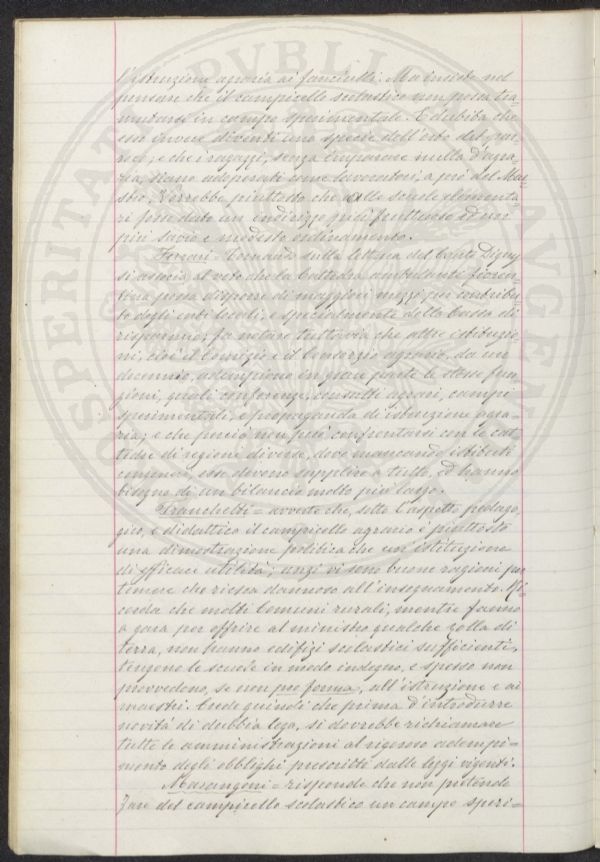 l'istruzione agraria ai fanciulli. Ma insiste nel
pensare che il campicello scolastico non possa tra-
mutarsi in campo sperimentale. E dubita che
esso invece diventi una specie dell'orto del par-
roco; e che i ragazzi, senza imparare nulla d'agra-
ria, siano adoperati come lavoratori, a prò del Mae-
stro. Vorrebbe piuttosto che alle scuole elementa
ri fosse dato un indirizzo più fruttuoso ed un
più savio e modesto ordinamento.
Ferrari = tornando sulla lettera del Conte Digny
si associa al voto che la Cattedra ambulante fioren-
tina possa disporre di maggiori mezzi per contribu
to degli enti locali, e specialmente della Cassa di
risparmio; fa notare tuttavia che altre istituzio
ni, cioè il Comizio e il Consorzio agrario, da un
decennio, adempiono in gran parte le stesse fun
zioni, quali conferenze, consulti agrari, campi
sperimentali, e propaganda di istruzione agra-
ria; e che perciò non può confrontarsi con le cat
tedre di regione diverse, dove mancando istituti
congeneri, esse devono supplire a tutto, ed hanno
bisogno di un bilancio molto più largo.
Franchetti = avverte che, sotto l'aspetto pedago
gico, e didattico il campicello agrario è piuttosto
una dimostrazione politica che un'istituzione
di efficaci utilità; anzi vi sono buone ragioni per
temere che riesca dannoso all'insegnamento. Ri-
corda che molti Comuni rurali, mentre fanno
a gara per offrire al ministro qualche zolla di
terra, non hanno edifizi scolastici sufficienti,
tengono le scuole in modo indegno, e spesso non
provvedono, se non per forma, all'istruzione e ai
maestri. Crede quindi che prima d'introdurre
novità di dubbia lega, si dovrebbe richiamare
tutte le amministrazioni al rigoroso adempi-
mento degli obblighi prescritti dalle leggi vigenti.
Masangoni = risponde che non pretende
fare del campicello scolastico un campo speri-